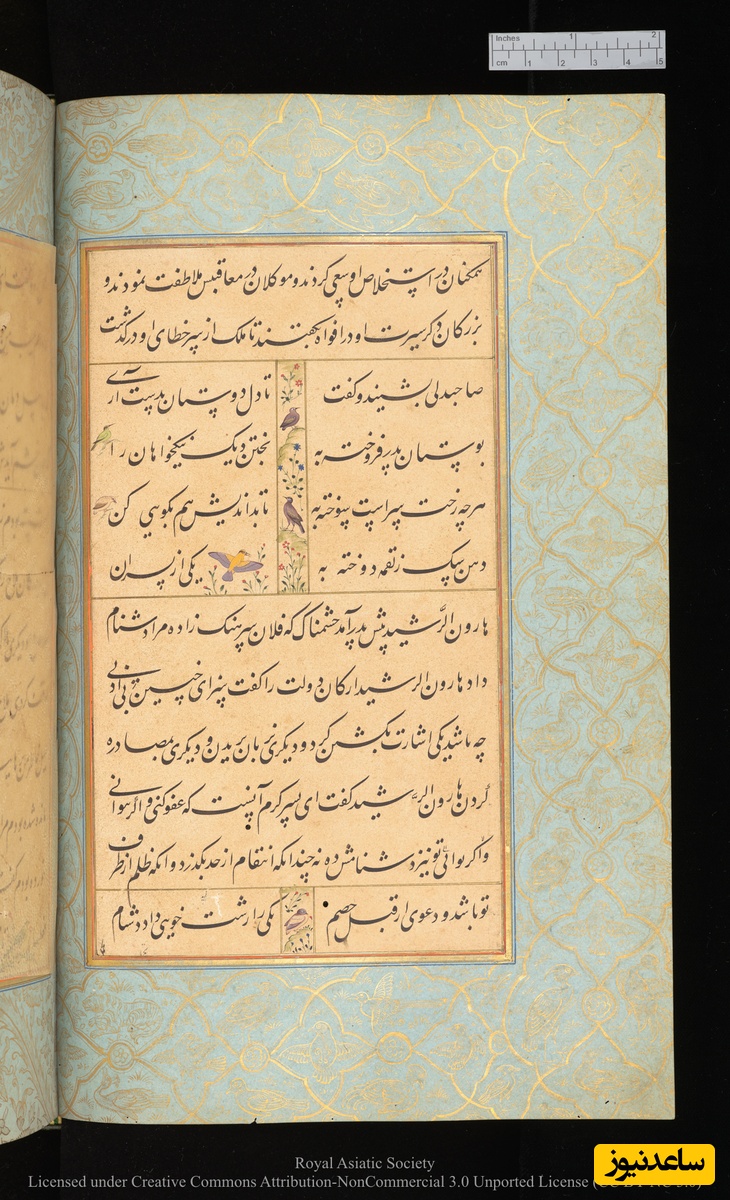 Inches 1 2
cm 1 2 3 4 5
همکنان در استخلاص او سعی کردند و موکلان در معاقبتش ملاطفت نمودند و
بزرکان ذکر سیرت او در افواه بکفتند تا ملک از سر خطای او در کذشت
صاحبدلی بشنید و کفت تا دل دوستان بدست آری
بوستان پدر فروخته به پختن دیک نیکخواهان را
هرچه رخت سراست سوخته به با بداندیش هم نکویی کن
دهن سک بلقمه دوخته به یکی از پسران
هارون الرشید پیش پدر آمد خشمناک که فلان سرهنک زاده مرا دشنام
داد هارون الرشید ارکان دولت را کفت سزای چنین بی ادبی
چه باشد یکی اشارت بکشتن کرد و دیکری بزبان بریدن و دیکری بمصادره
کردن هارون الرشید کفت ای پسر کرم آنست که عفو کنی و اکر نتوانی
تو نیز دشنامش ده نه چندانکه انتقام از حد بکذرد و آنکه ظلم از طرف
تو باشد و دعوی از قبل خصم یکی را زشت خویی داد دشنام
ساعدنیوز
Royal Asiatic Society
Licensed under Creative Commons Attribution-NonCommercial 3.0 Unported License